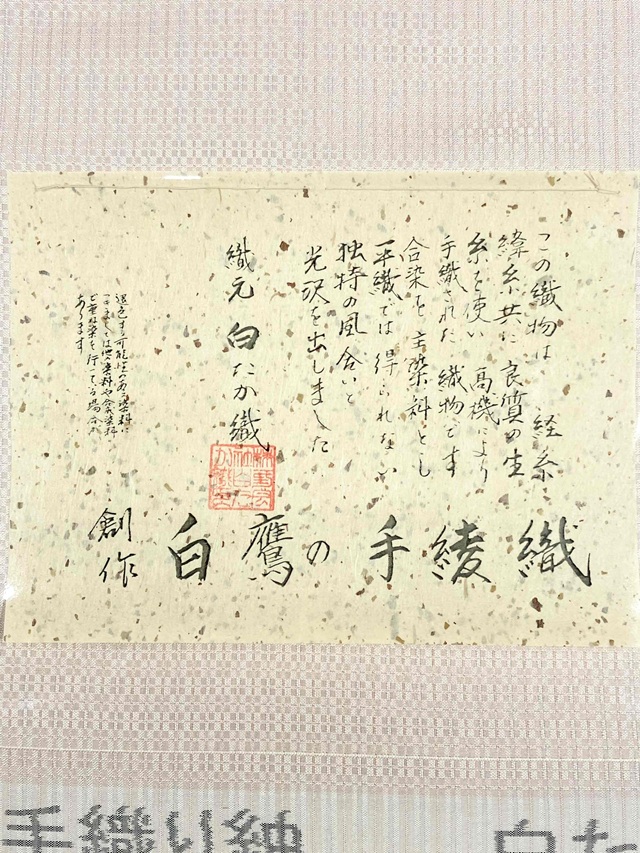 この織物は 経糸
緯糸共に 良質の生
糸を使い 高機により
手織された 織物です
合染を 主染料とし
手織では 得られない
独特の風合いと
光沢を出しました
織元 白たか織
退色する可能性のある染料に
つきましては他染料や合成染料
と重ね染を行っている場合が
あります
創作 白鷹の手綾織